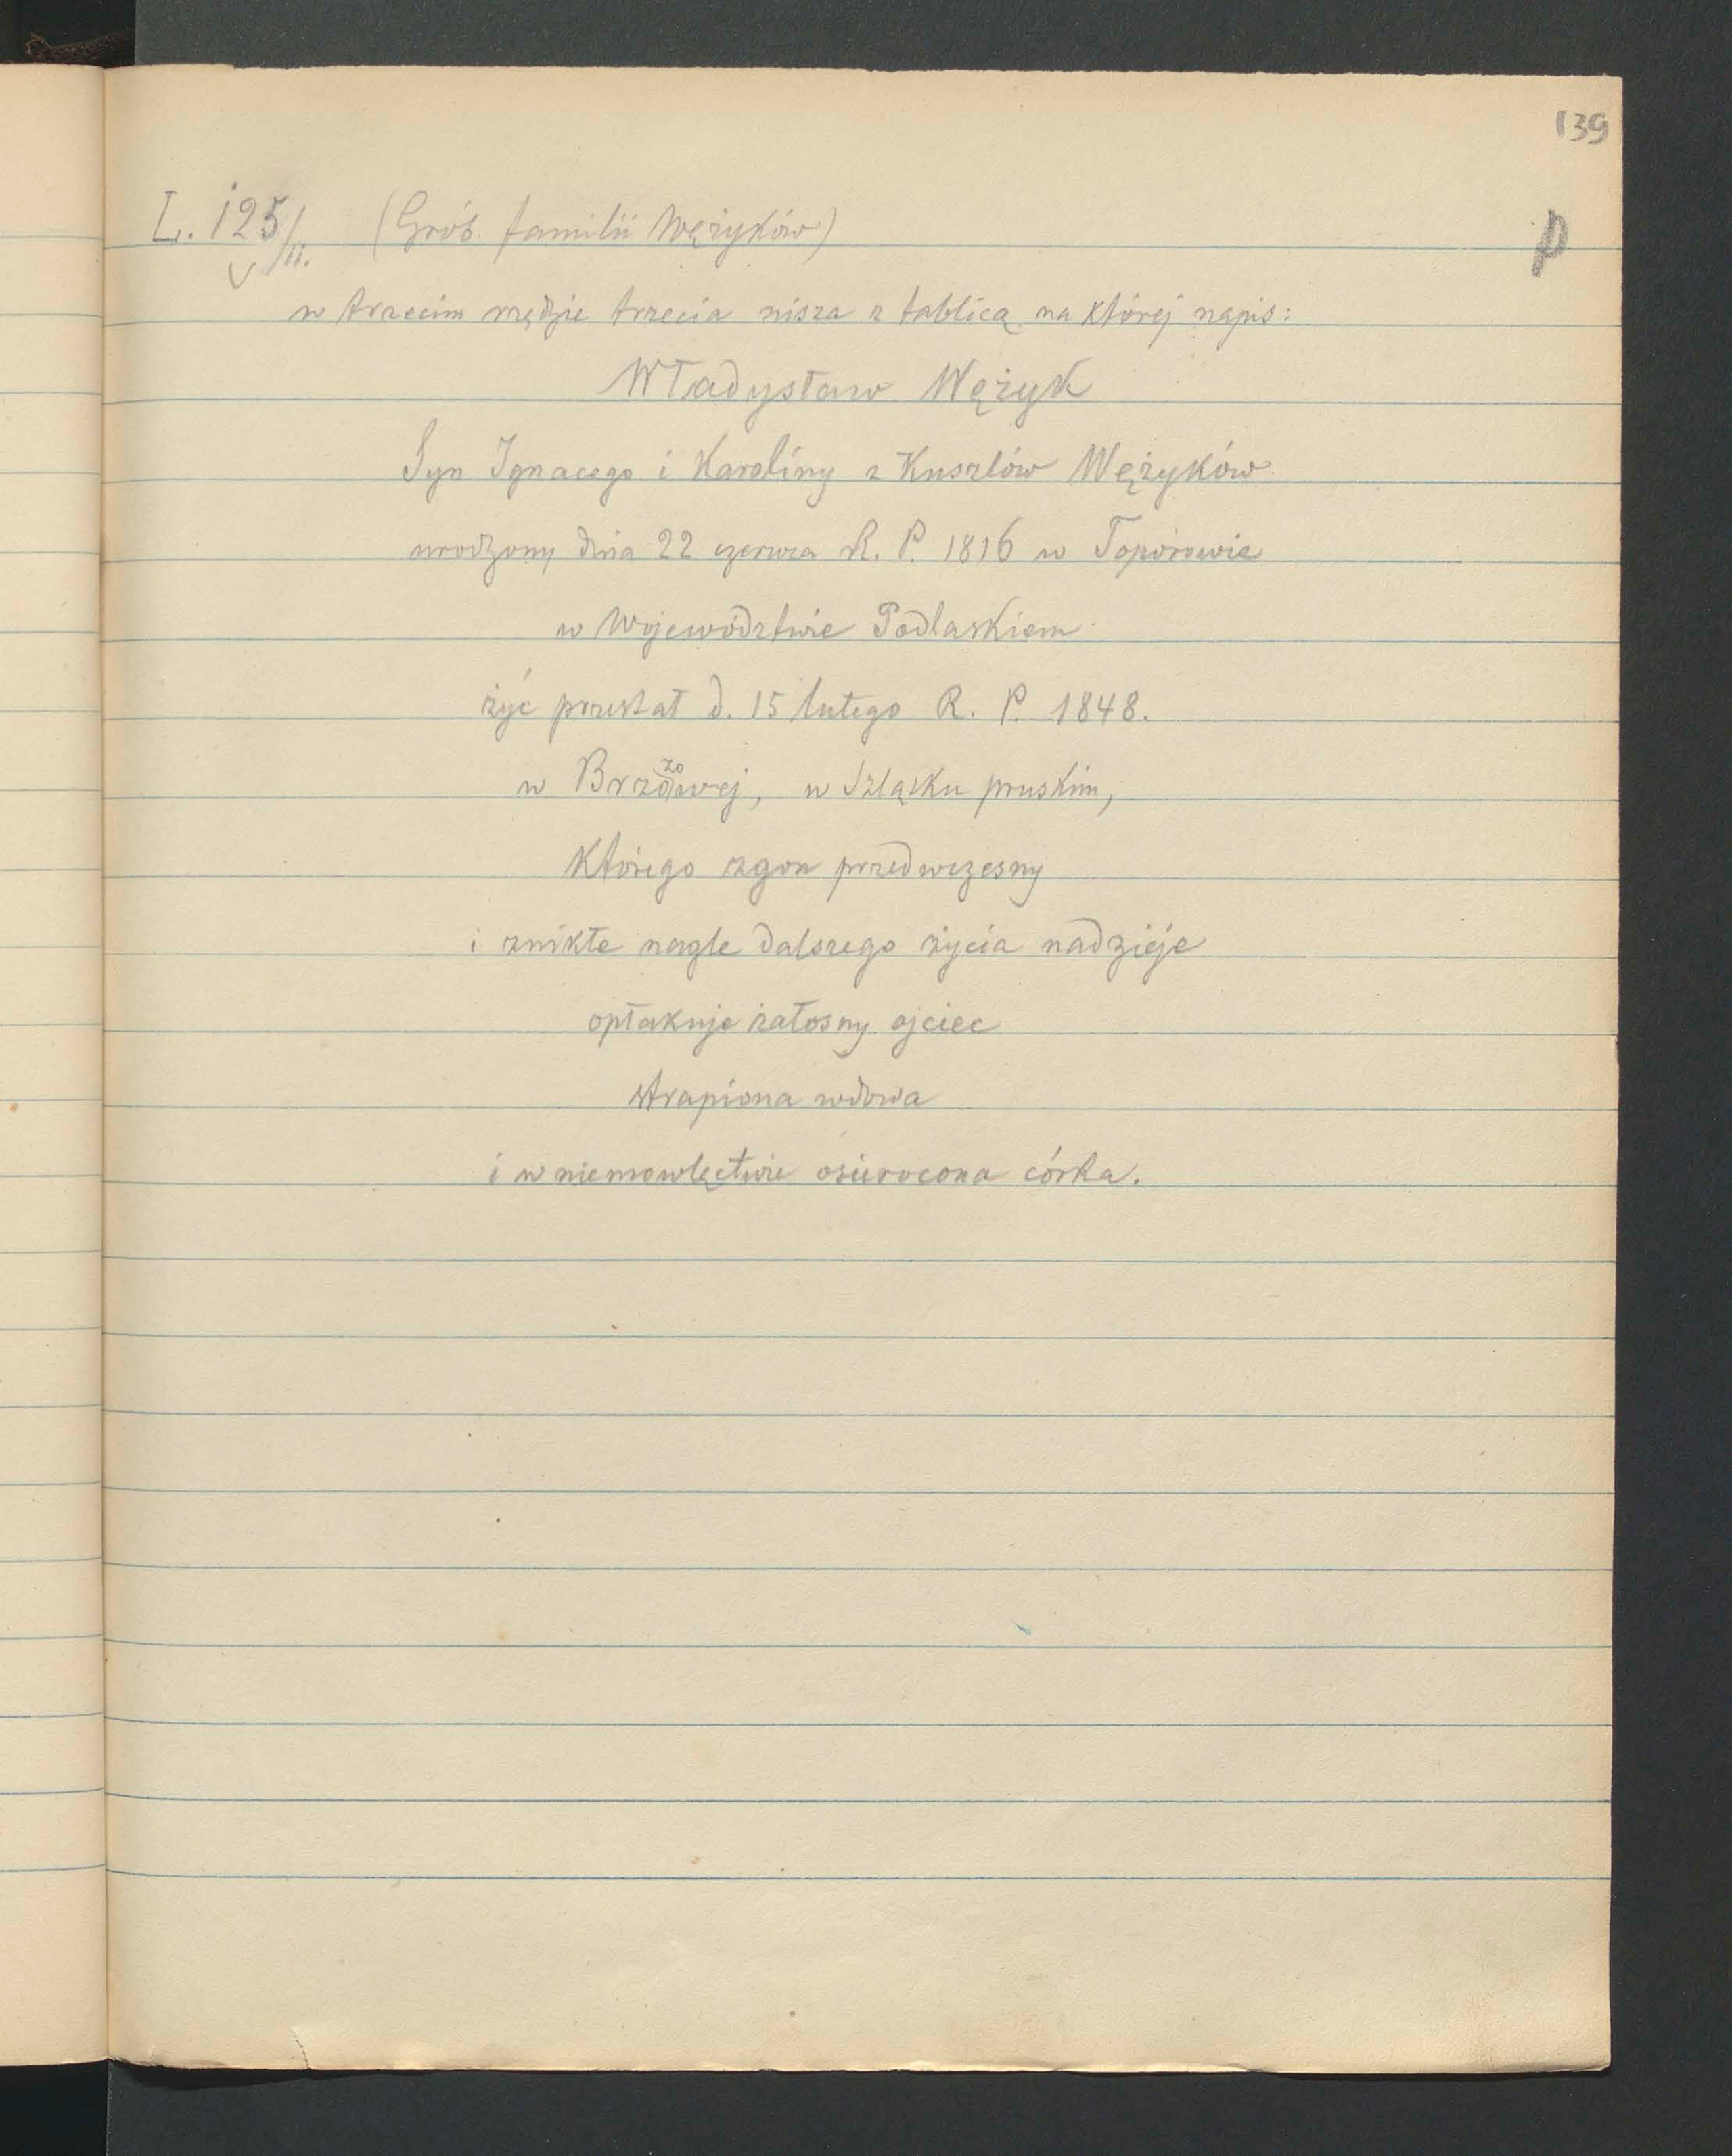 139
L. 125/II. (Grób familii Wężyków) p
w trzecim rzędzie trzecia nisza z tablicą na której napis:
Władysław Wężyk
Syn Ignacego i Karoliny z Kuszlów Wężyków
urodzony dnia 22 czerwca R. P. 1816 w Toporowie
w Województwie Podlaskiem
żyć przestał d. 15 lutego R. P. 1848.
w Brzozowej, w Szląsku pruskim,
którego zgon przedwczesny
i znikłe nagle dalszego życia nadzieje
opłakuje żałosny ojciec
strapiona wdowa
i w niemowlęctwie osierocona córka.